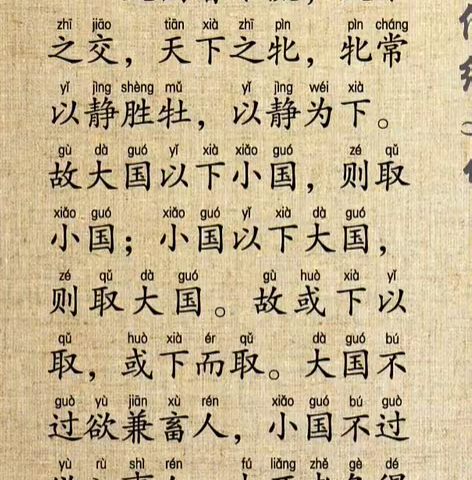 zhī jiāo tiān xià zhī pìn pìn cháng
之交，天下之牝，牝常
yǐ jìng shèng mǔ yǐ jìng wéi xià
以静胜牡，以静为下。
gù dà guó yǐ xià xiǎo guó zé qǔ
故大国以下小国，则取
xiǎo guó xiǎo guó yǐ xià dà guó
小国；小国以下大国，
zé qǔ dà guó gù huò xià yǐ
则取大国。故或下以
qǔ huò xià ér qǔ dà guó bú
取，或下而取。大国不
guò yù jiān xù rén xiǎo guó bú guò
过欲兼畜人，小国不过
yù rù shì rén fú liǎng zhě gè dé